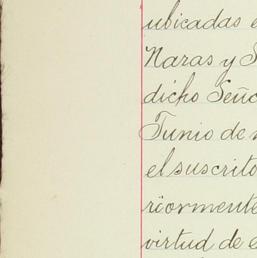 ubicadas e
Naras y S
dicho Seño
Junio de
el suscrito
riormente
virtud de e